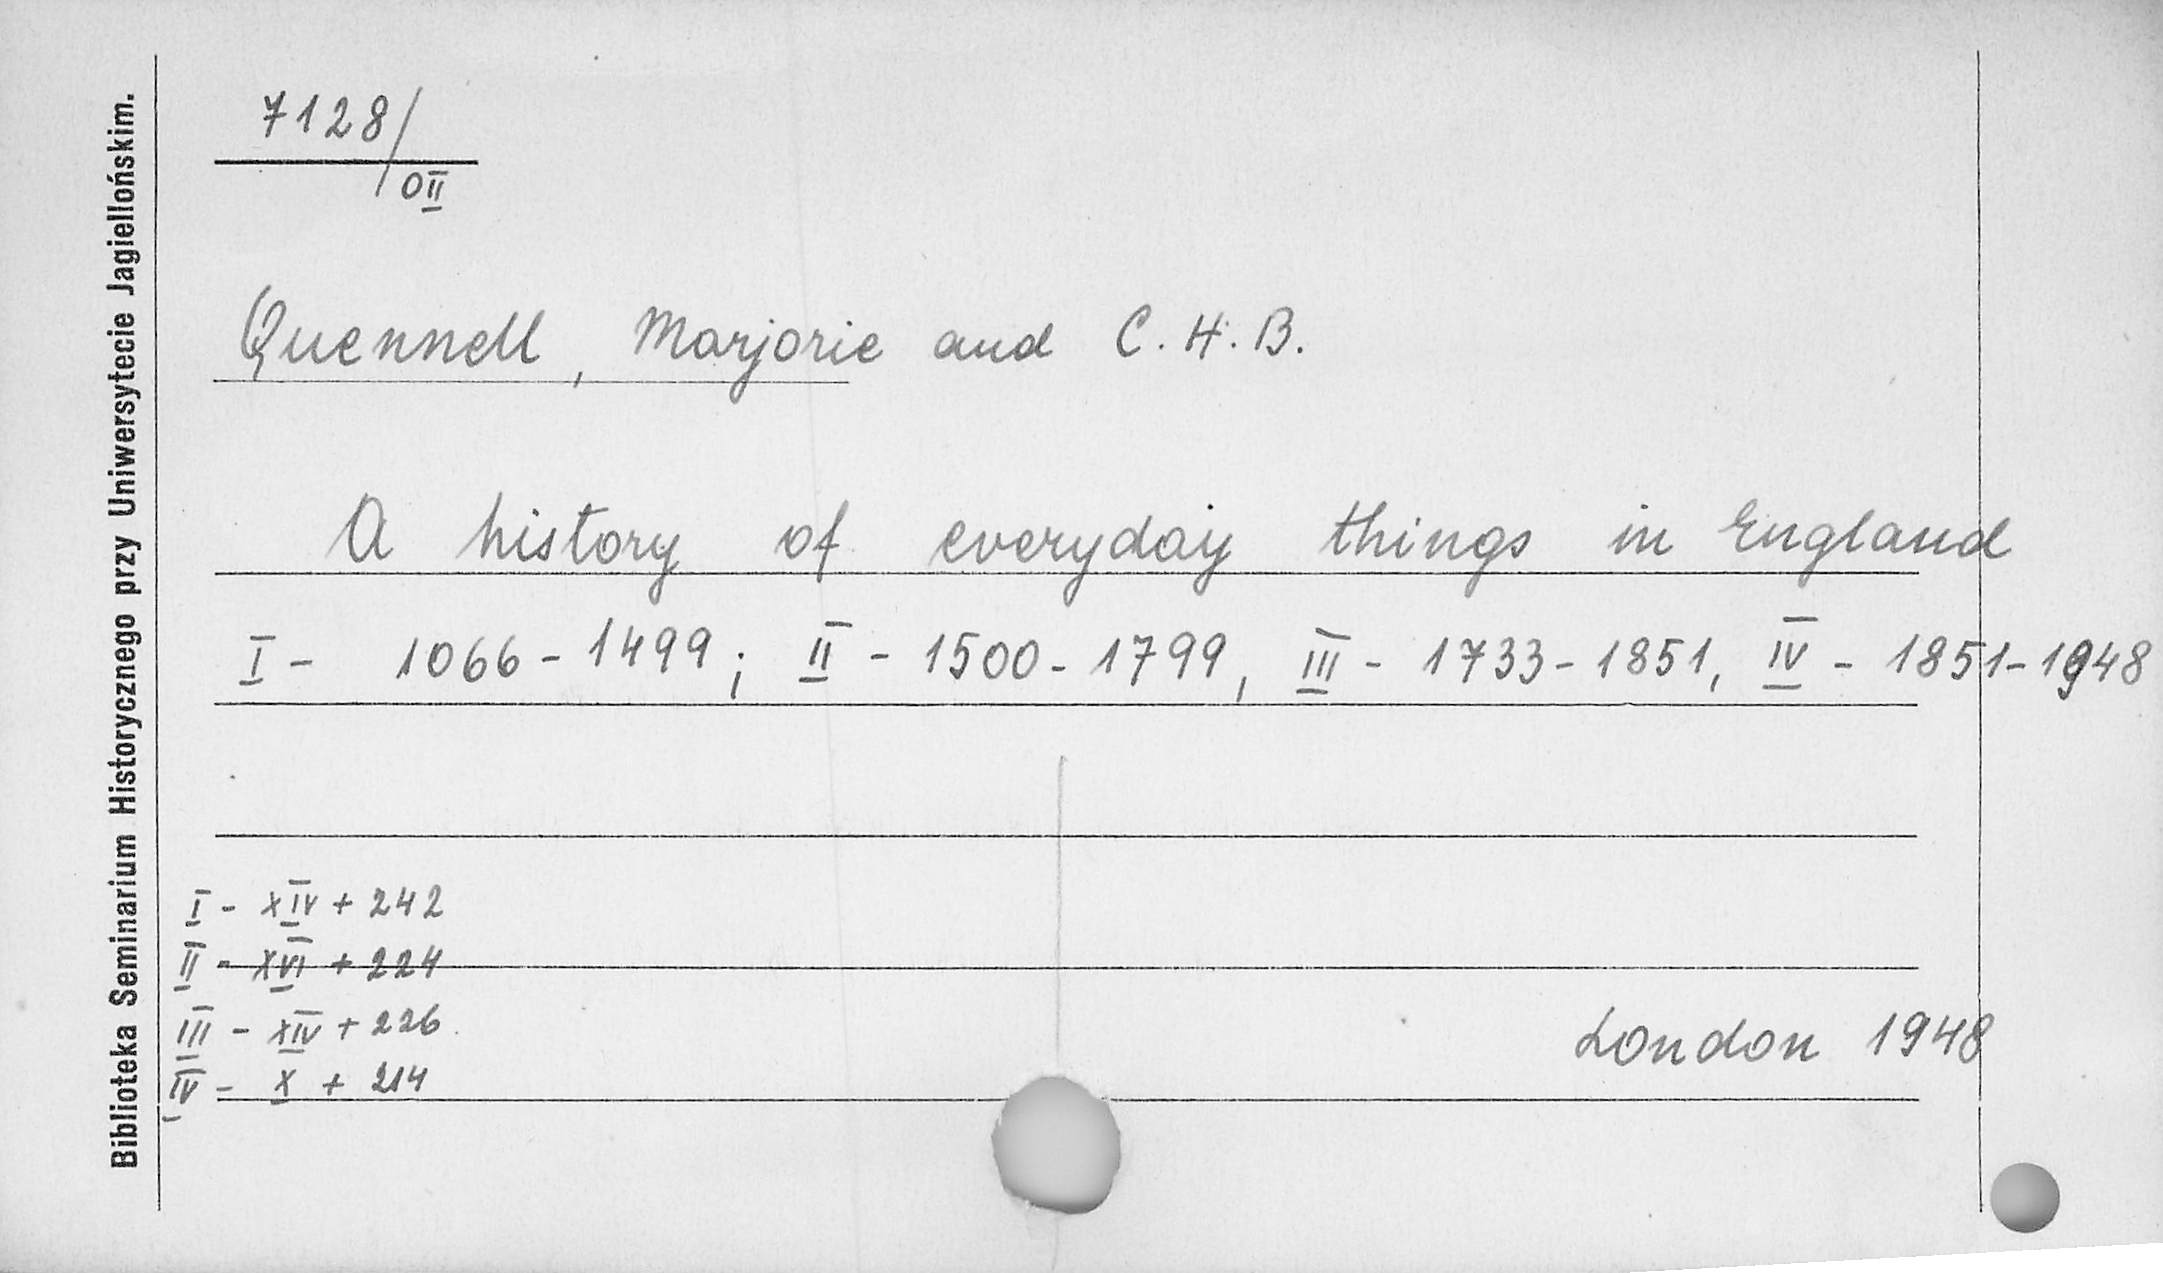 Biblioteka Seminarium Historycznego przy Uniwersytecie Jagiellońskim.
7128/
OII
Quennell, Marjorie and C. H. B.
A history of everyday things in England
I - 1066 - 1499; II - 1500 - 1799, III - 1733 - 1851, IV - 1851 - 1948
I - XIV + 242
II - XVI + 224
III - XIV + 226
IV - X + 214
London 1948